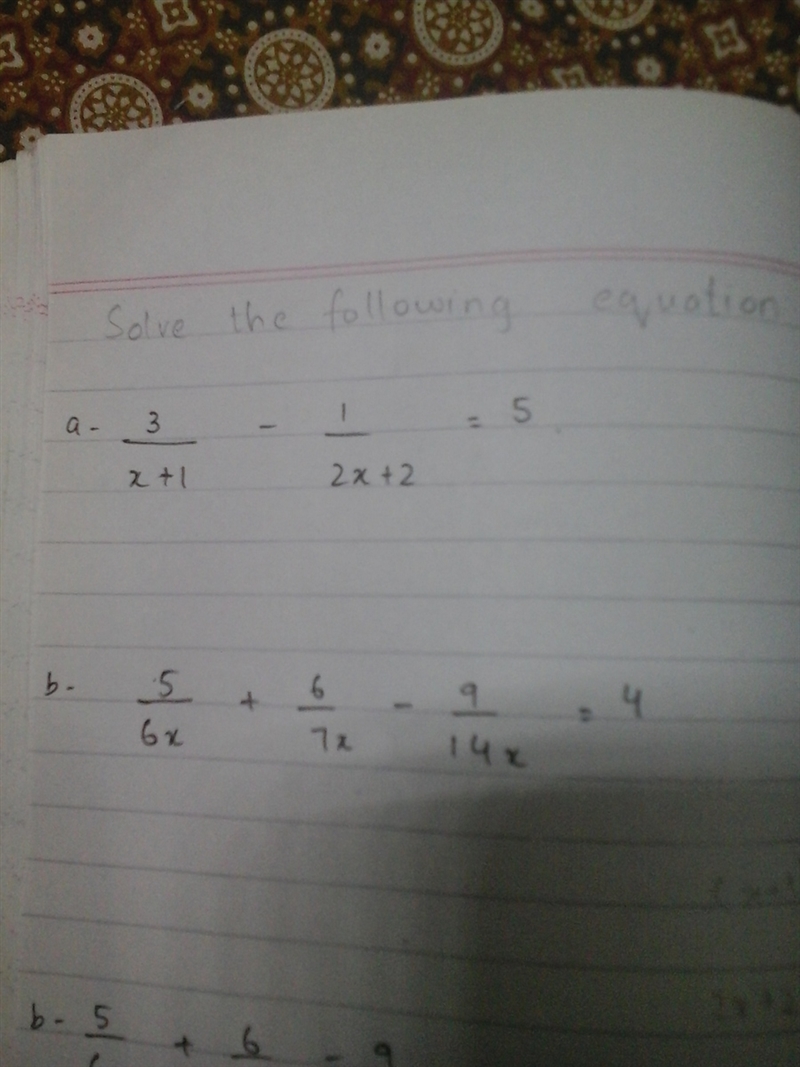 Solve the following equation
a- 3/(x+1) - 1/(2x+2) = 5
b- 5/6x + 6/7x - 9/14x = 4
b- 5 + 6 - 9